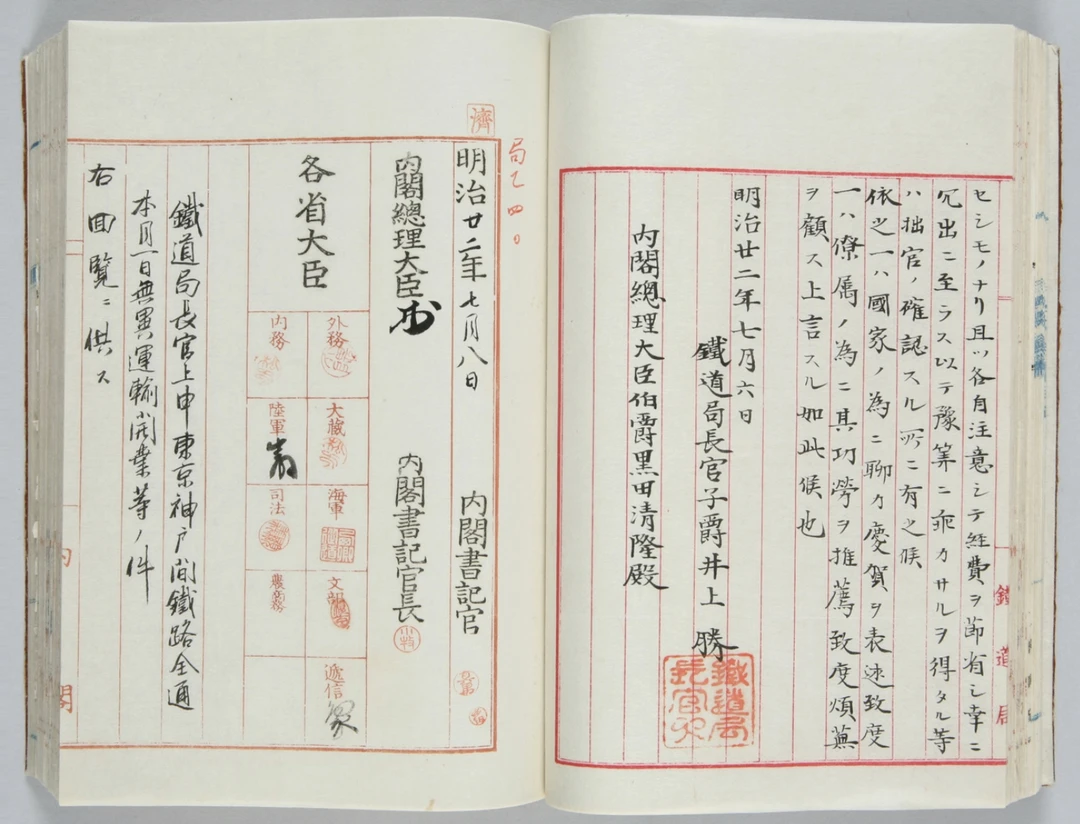 セシモノナリ且ツ各自注意シテ経費ヲ節省シ幸ニ
冗出ニ至ラス以テ豫筭ニ乖カサルヲ得タル等
ハ拙官ノ確認スル所ニ有之候
依之一ハ國家ノ為ニ聊カ慶賀ヲ表速致度
一ハ僚属ノ為ニ其功勞ヲ推薦致度煩蕪
ヲ顧ス上言スル如此候也
明治廿二年七月六日
鐵道局長官子爵井上勝
鐵道局長官之
內閣總理大臣伯爵黒田清隆殿
鐵道局
濟
局乙四
明治廿二年七月八日
內閣書記官
內閣總理大臣
內閣書記官長
各省大臣
外務
大藏
海軍
文部
遞信
內務
陸軍
司法
農商務
鐵道局長官上申東京神戸間鐵路全通
本月一日無異運輸開業等ノ件
右回覽ニ供ス
內閣